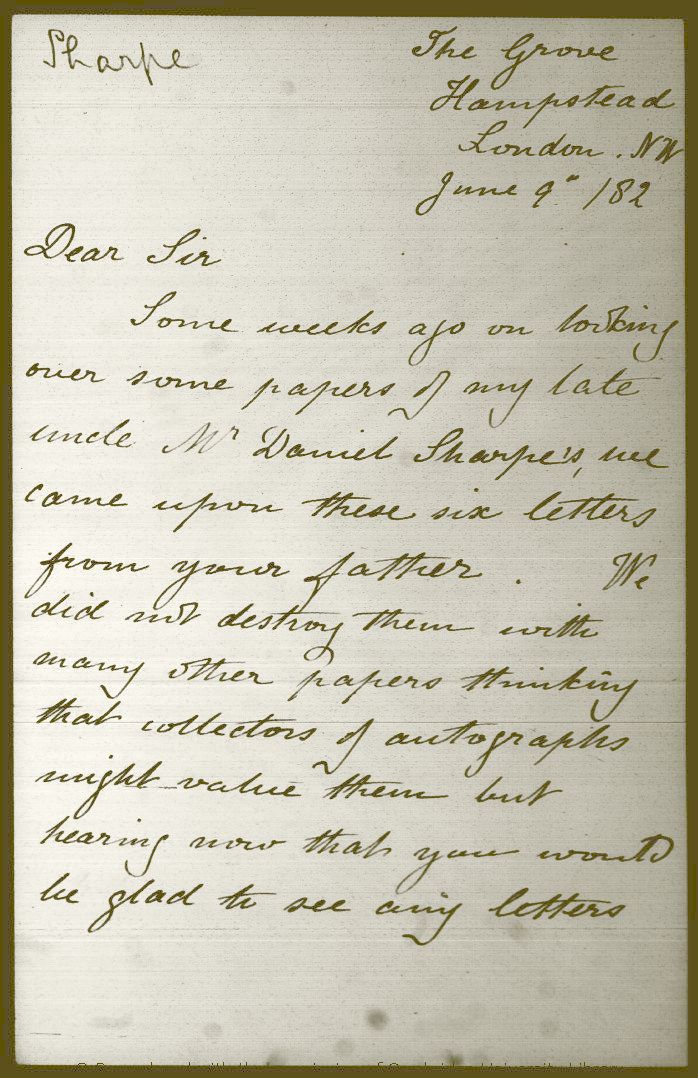 Sharpe
The Grove
Hampstead
London. NW
June 9" /82
Dear Sir
Some weeks ago on looking
over some papers of my late
uncle Mr Daniel Sharpe's, we
came upon these six letters
from your father. We
did not destroy them with
many other papers thinking
that collectors of autographs
might value them but
hearing now that you would
be glad to see any letters